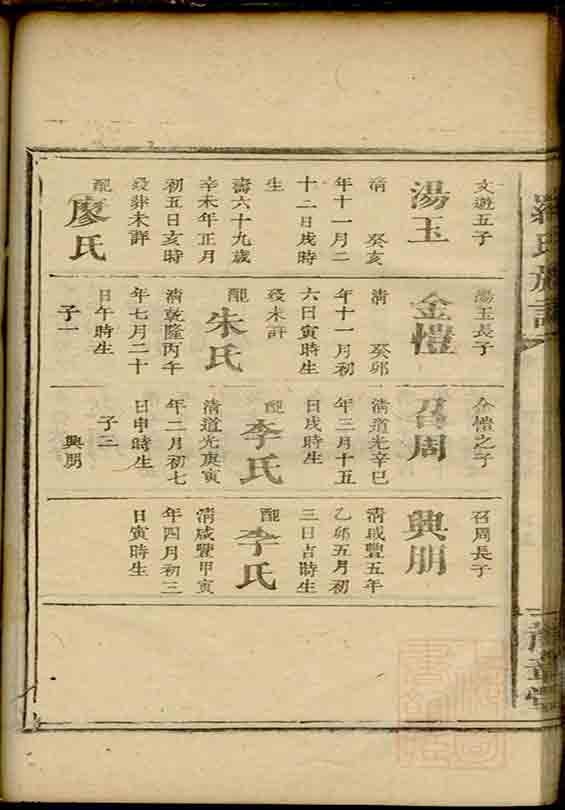 羅氏族譜
文遊五子
湯玉
清 癸亥
年十一月二
十二日戌時
生
壽六十九歲
辛未年正月
初五日亥時
歿葬未詳
配
廖氏
湯玉長子
金愷
清 癸卯
年十一月初
六日寅時生
歿未詳
配
朱氏
清乾隆丙午
年七月二十
日午時生
子一
金愷之子
召周
清道光辛巳
年三月十五
日戌時生
配
李氏
清道光庚寅
年二月初七
日申時生
子二
興朋
召周長子
興朋
清咸豐五年
乙卯五月初
三日吉時生
配
李氏
清咸豐甲寅
年四月初三
日寅時生